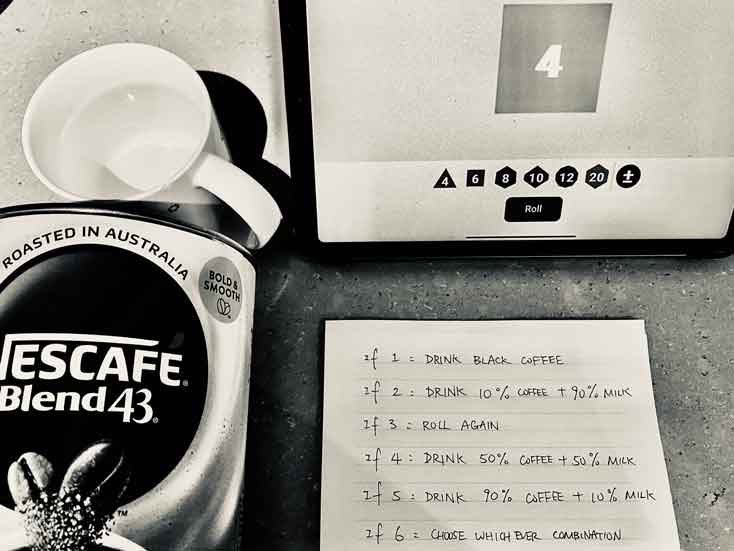 4
4 6 8 10 12 20 ±
Roll
ROASTED IN AUSTRALIA
BOLD &
SMOOTH
NESCAFÉ®
Blend 43®
TM
If 1 : DRINK BLACK COFFEE
If 2 : DRINK 10% COFFEE + 90% MILK
If 3 : ROLL AGAIN
If 4 : DRINK 50% COFFEE + 50% MILK
If 5 : DRINK 90% COFFEE + 10% MILK
If 6 : CHOOSE WHICHEVER COMBINATION